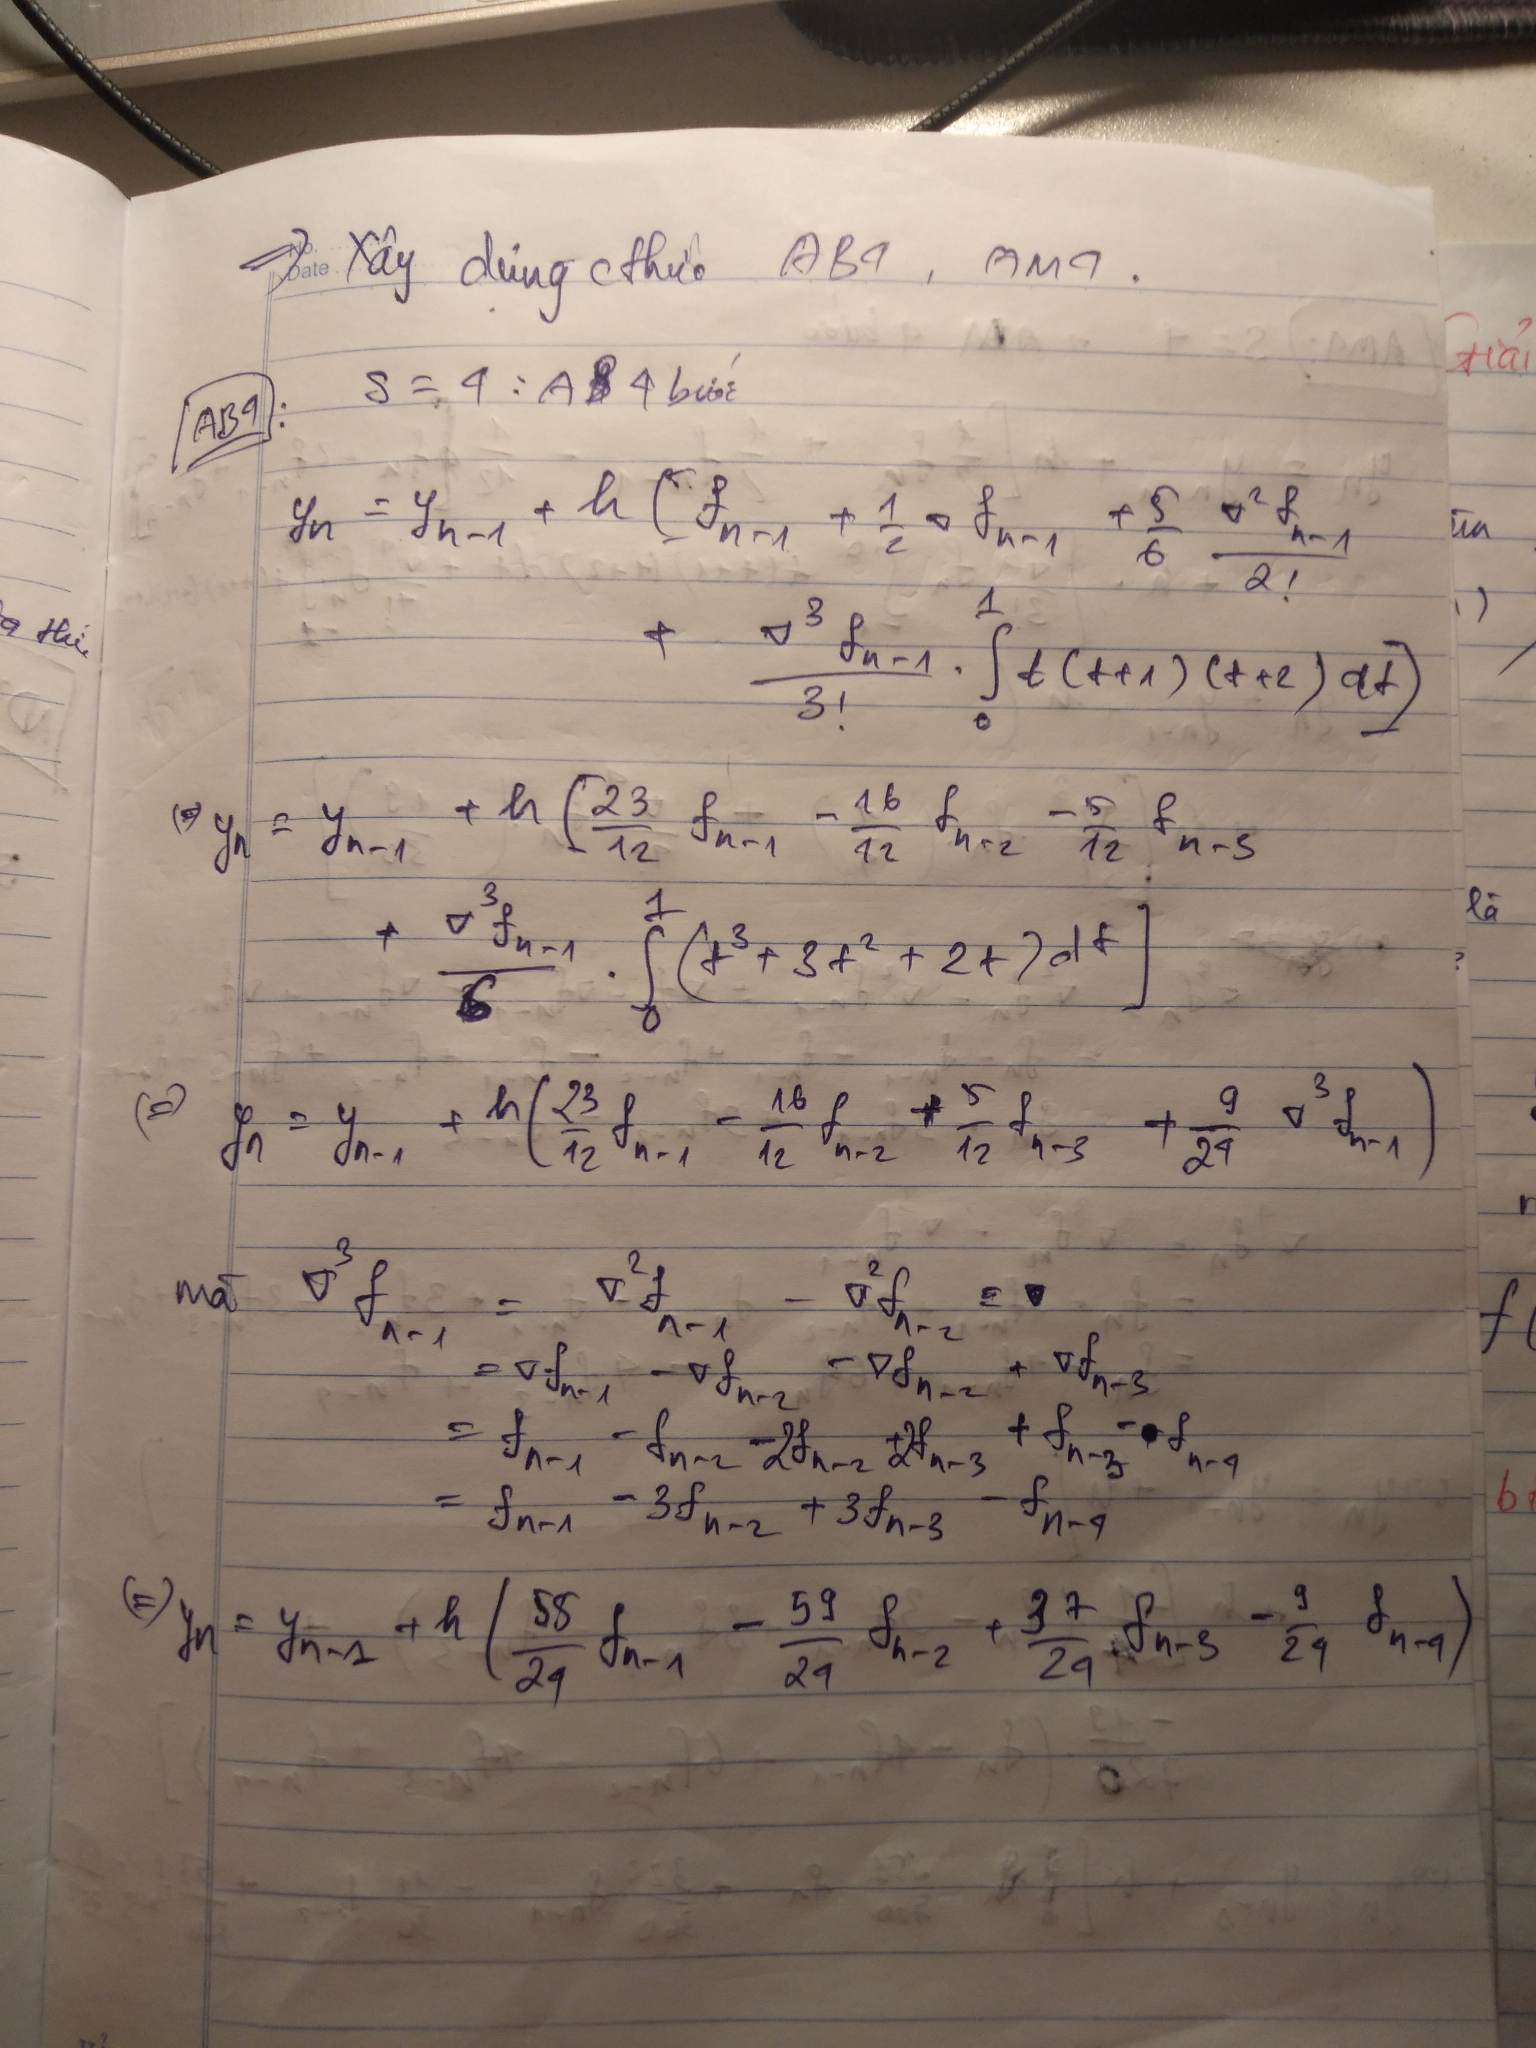 No.
Date
→ Xây dựng cthức AB4, AM4.
AB4: S = 4 : AB 4 bước
yₙ = yₙ₋₁ + h [ fₙ₋₁ + 1/2 ∇fₙ₋₁ + 5/6 ∇²fₙ₋₁/2!
+ ∇³fₙ₋₁/3! . ∫₀¹ t(t+1)(t+2) dt ]
(=) yₙ = yₙ₋₁ + h [ 23/12 fₙ₋₁ - 16/12 fₙ₋₂ - 5/12 fₙ₋₃
+ ∇³fₙ₋₁/6 . ∫₀¹ (t³ + 3t² + 2t) dt ]
(=) yₙ = yₙ₋₁ + h ( 23/12 fₙ₋₁ - 16/12 fₙ₋₂ + 5/12 fₙ₋₃ + 9/24 ∇³fₙ₋₁ )
mà ∇³fₙ₋₁ = ∇²fₙ₋₁ - ∇²fₙ₋₂ = ∇
= ∇fₙ₋₁ - ∇fₙ₋₂ - ∇fₙ₋₂ + ∇fₙ₋₃
= fₙ₋₁ - fₙ₋₂ - 2fₙ₋₂ + 2fₙ₋₃ + fₙ₋₃ - fₙ₋₄
= fₙ₋₁ - 3fₙ₋₂ + 3fₙ₋₃ - fₙ₋₄
(=) yₙ = yₙ₋₁ + h ( 55/24 fₙ₋₁ - 59/24 fₙ₋₂ + 37/24 fₙ₋₃ - 9/24 fₙ₋₄ )
Giải
là